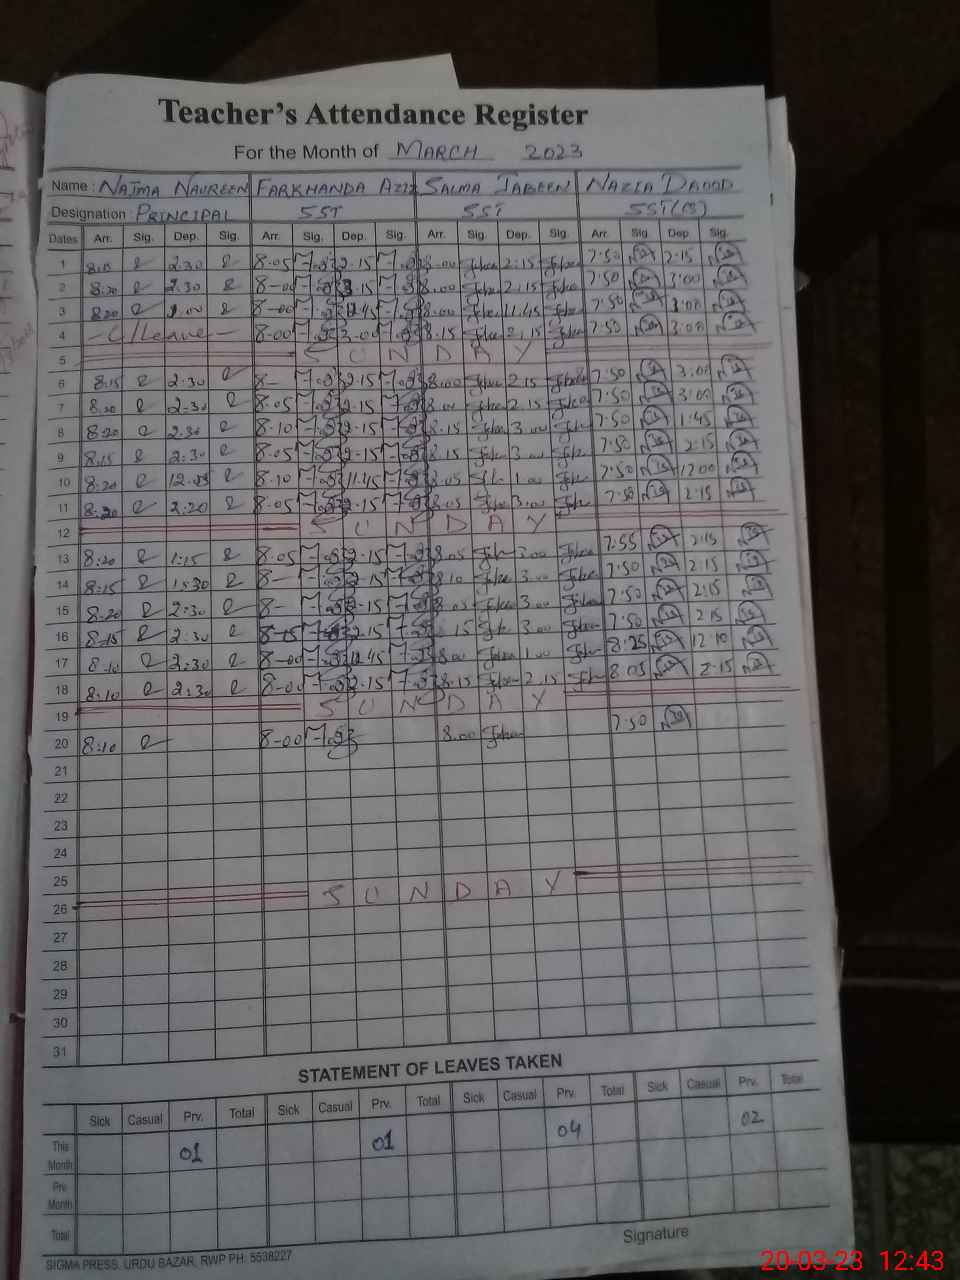 Teacher's Attendance Register
For the Month of MARCH 2023
Name : NAJMA NAUREEN FARKHANDA AZIZ SALMA JABEEN NAZIA DAOOD
Designation : PRINCIPAL SST SST SST(B)
Dates Arr. Sig. Dep. Sig. Arr. Sig. Dep. Sig. Arr. Sig. Dep. Sig. Arr. Sig. Dep. Sig.
1 8.15 2:30 8-05 2-15 8.00 2:15 7:50 2:15
2 8:20 2:30 8-00 8.00 2.15 7:50 3:00
3 8:20 8-00 8:00 11.45 7:50 3:00
4 - C/Leave - 8-00 3-00 8.15 2.15 7:50 3:00
5 S U N D A Y
6 8.15 2.30 8- 2-15 8.00 2.15 7:50 3:00
7 8.20 2.30 8-05 2-15 8.00 2.15 7:50 3:00
8 8:20 2.30 8-10 2-15 8.15 3.00 7:50 1:45
9 8:15 2:30 8-05 2-15 8.15 3.00 7:50 2:15
10 8:20 8-10 11.45 8.05 1.00 7:50 12:00
11 8.20 2:20 8-05 2-15 8.05 3.00 7:50 2:15
12 S U N D A Y
13 8:20 1:15 8-05 2-15 8.05 3.00 7:55 2:15
14 8:15 1:30 8- 2-15 8.10 3.00 7:50 2:15
15 8:20 2:30 8- 2-15 8.05 3.00 7:50 2:15
16 8-15 2:30 8-15 2-15 8.15 3.00 7:50 2:15
17 8.10 2:30 8-00 12.45 8.00 1.00 8:25 12:10
18 8:10 2:30 8-00 2-15 8.15 2.15 8:05 2:15
19 S U N D A Y
20 8:10 8-00 8.00 7:50
21
22
23
24
25
26 S U N D A Y
27
28
29
30
31
STATEMENT OF LEAVES TAKEN
Sick Casual Prv. Total Sick Casual Prv. Total Sick Casual Prv. Total Sick Casual Prv. Total
This Month 01 01 04 02
Pre Month
Total
Signature
SIGMA PRESS, URDU BAZAR, RWP PH: 5538227
20-03-23 12:43